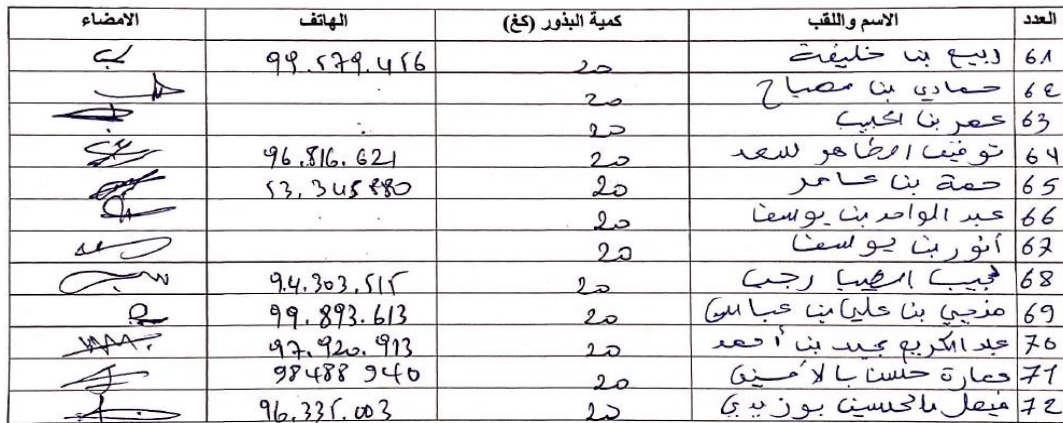 العدد الاسم واللقب كمية البذور (كغ) الهاتف الامضاء
61 ربيع بن خليفة 20 99.579.456
62 حمادي بن مصباح 20
63 عمر بن الحبيب 20
64 توفيق الطاهر لسعد 20 96.816.621
65 حمة بن عامر 20 53.345880
66 عبد الواحد بن يوسف 20
67 أنور بن يوسف 20
68 رجب 20 94.303.515
69 منجي بن علي بن عباس 20 99.893.613
70 عبد الكريم بن أحمد 20 97.920.913
71 20 98488940
72 فيصل بوزيدي 20 96.335.003